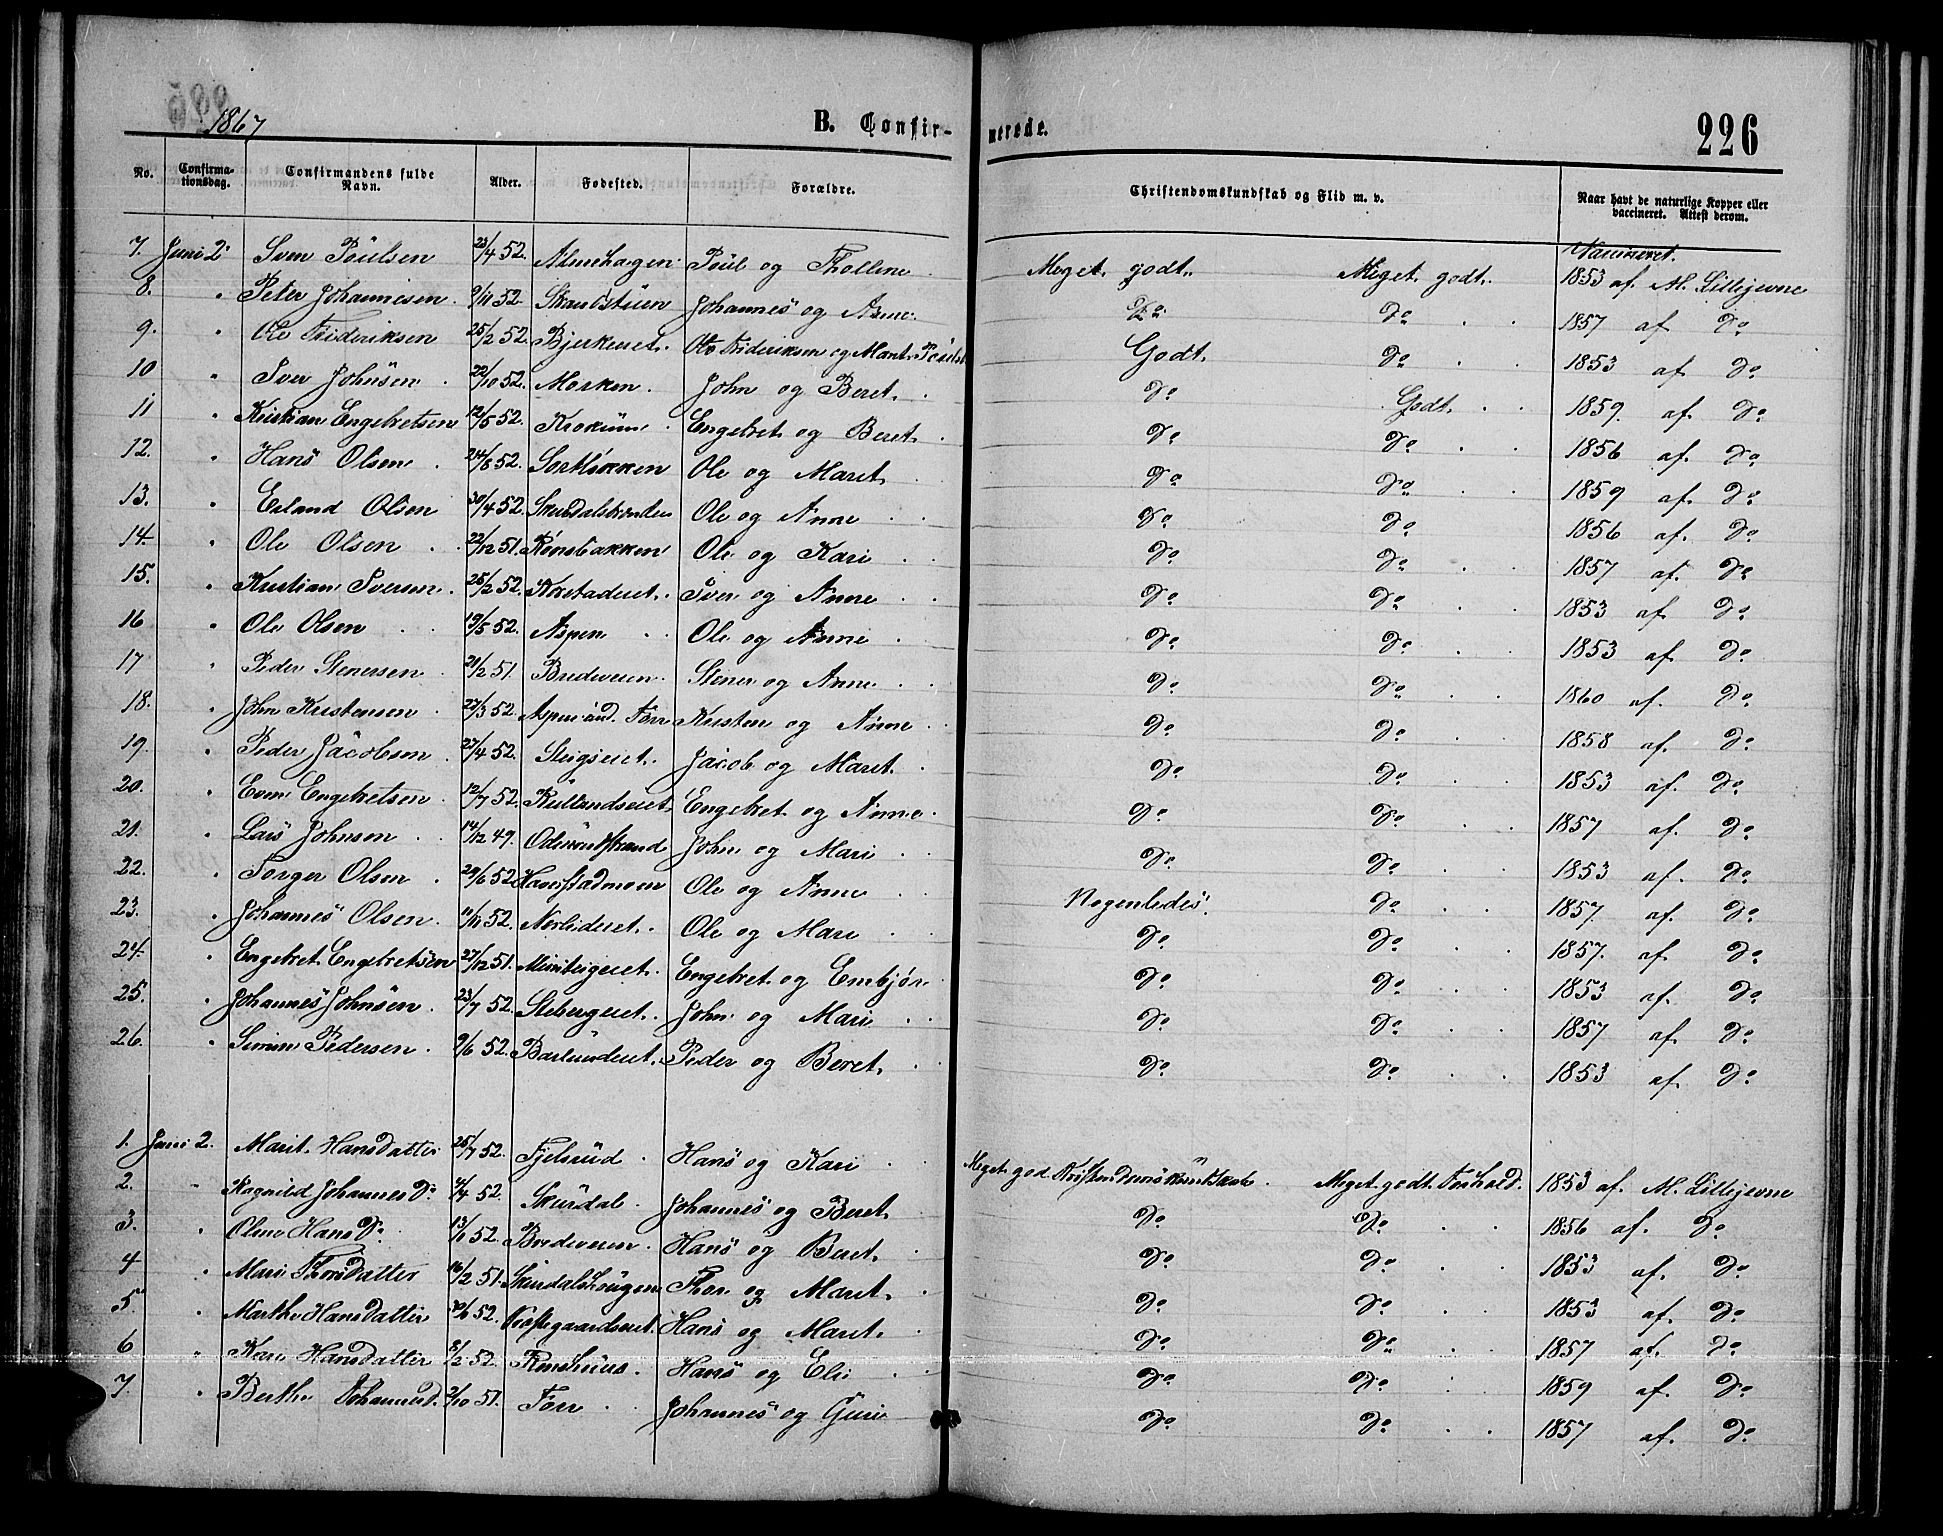 1867 B. Confir- merede. 226
No. Confirma-tionsdag. Confirmandens fulde Navn. Alder. Fødested. Forældre. Christendomskundskab og Flid m. v. Naar havt de naturlige Kopper eller vaccineret. Attest derom.
Vaccineret.
7. Juni 2. Sven Poulsen 23/4 52. Almehagen Poul og Tholline Meget godt. Meget godt. 1853 af M. Lillejevne
8. " Peter Johannesen 9/11 52. Strandstuen Johannes og Anne. Do Do 1857 af Do
9. " Ole Frideriksen 25/2 52. Bjerkeeiet. Ole Frideriksen og Marit Godt. Do 1853 af Do
10 " Iver Johnsen 22/10 52. Morken. John og Beret. Do Godt. 1859. af. Do
11 " Kristian Engebretsen 12/5 52. Engebret og Beret. Do Do 1856 af. Do
12. " Hans Olsen 24/8 52. Sortløkken Ole og Maret Do Do 1859 af. Do
13. " Erland Olsen 30/4 52. Ole og Anne Do Do 1856 af. Do
14. " Ole Olsen 22/12 51. Rønsbakken Ole og Kari Do Do 1857 af. Do
15. " Kristian Iversen. 25/2 52. Iver og Anne Do Do 1853 af Do
16 " Ole Olsen 19/5 52. Aspen Ole og Anne Do Do 1853 af Do
17 " Peder Stenersen 21/12 51. Bredeveien. Stener og Anne Do Do 1860 af. Do
18. " John Kristensen 22/3 52. Aspen und. Forr Kristen og Anne Do Do 1858 af. Do
19. " Peder Jacobsen 27/4 52. Steigseiet. Jacob og Maret. Do Do 1853 af. Do
20. " Even Engebretsen 12/7 52. Engebret og Anne. Do Do 1857 af. Do
21. " Lars Johnsen 14/12 49. John og Mari Do Do 1853 af. Do
22. " Torger Olsen 29/6 52. Harrstadmoen Ole og Anne Nogenledes. Do 1857. af. Do
23. " Johannes Olsen. 11/11 52. Norlideiet. Ole og Mari Do Do 1857. af. Do
24. " Engebret Engebretsen 27/12 51. Engebret og Embjør Do Do 1853 af. Do
25. " Johannes Johnsen. 23/7 52. Stebergeiet. John og Mari Do Do 1857 af. Do
26. " Simen Pedersen 9/6 52. Barlundeiet. Peder og Beret. Do Do 1853 af. Do
1. Juni 2. Marit Hansdatter 25/7 52. Fjelsrud Hans og Kari Meget god Kristendomskundskab. Meget godt Forhold. 1853 af. M. Lillejevne
2. " Ragnild Johannes Do 4/4 52. Skurdal Johannes og Beret. Do Do 1856 af. Do
3. " Oline Hans Do 52. Bredeveien. Hans og Beret. Do Do 1853 af. Do
4 " Mari Thorsdatter 16/12 51. Skurdalshaugen Thor og Maret. Do Do 1853 af. Do
5 " Marthe Hansdatter 52. Hans og Maret. Do Do 1857 af. Do
6 " Kari Hansdatter 52. Hans og Eli Do Do 1859 af. Do
7. " Berthe Johannesd. 2/10 51. Forr Johannes og Guri Do Do 1857 af. Do